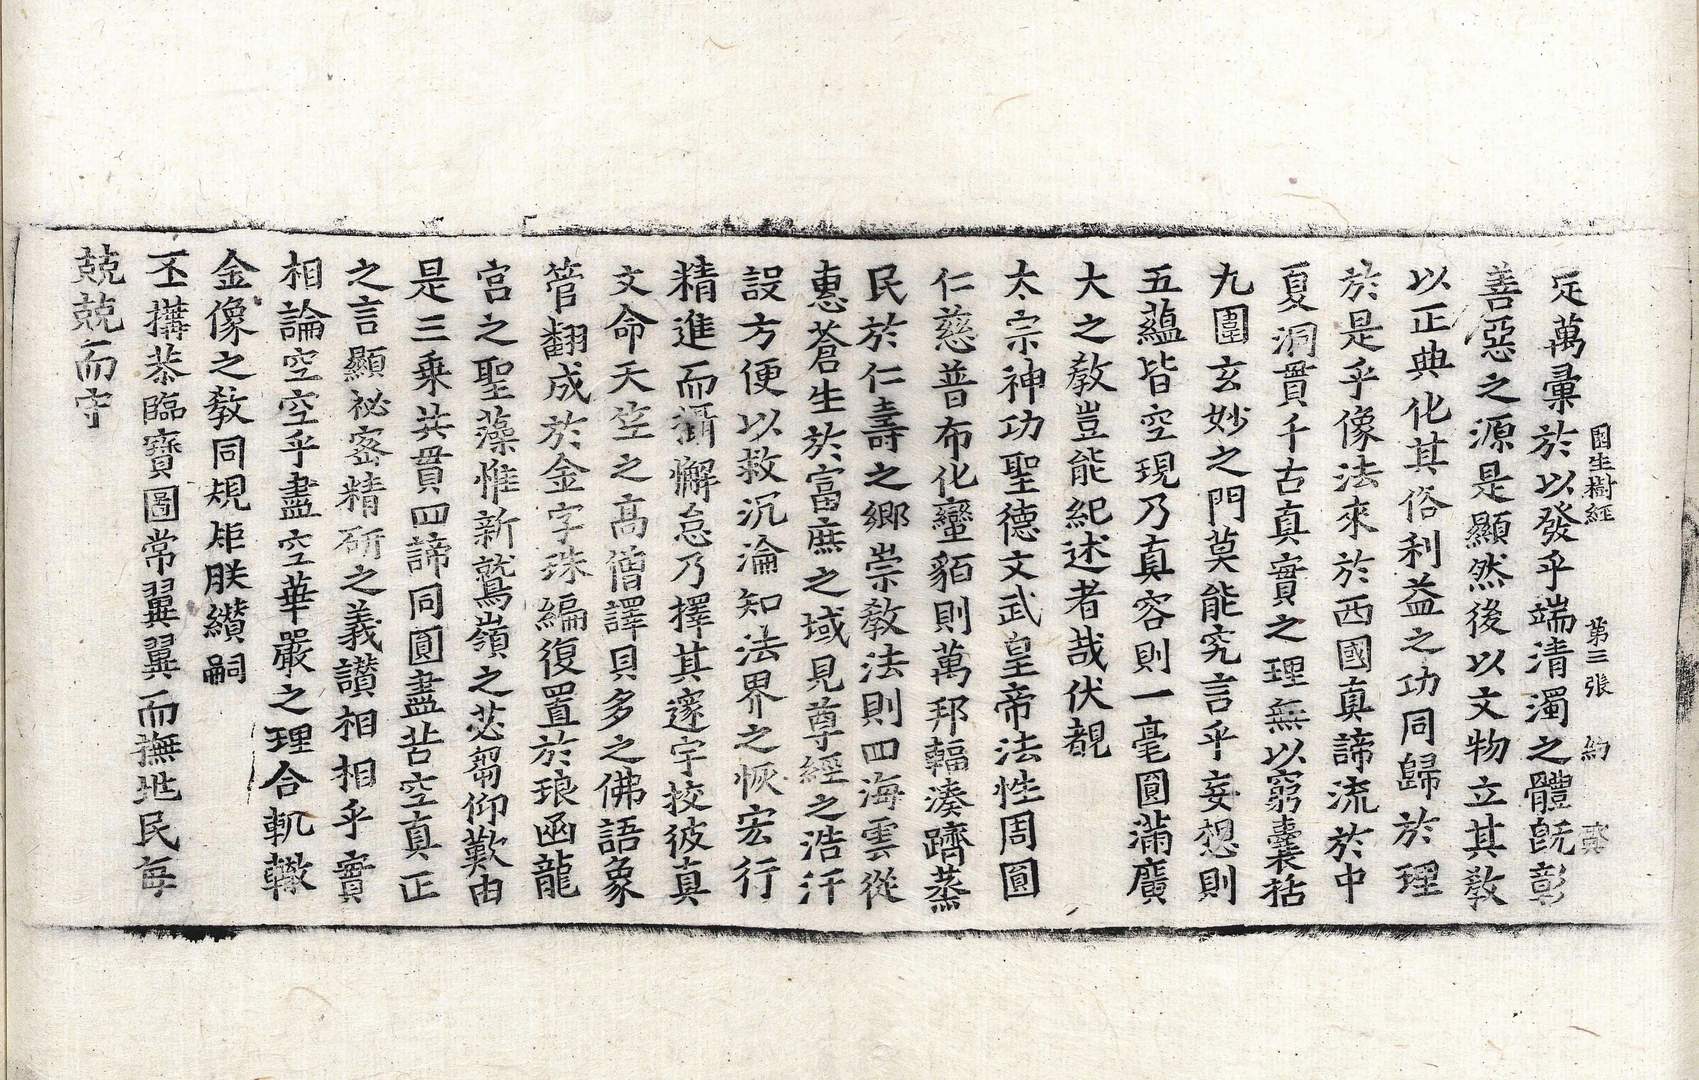 園生樹經 第三張 約 齊
定萬彙於以發乎端清濁之體旣彰
善惡之源是顯然後以文物立其敎
以正典化其俗利益之功同歸於理
於是乎像法來於西國真諦流於中
夏洞貫千古真實之理無以窮囊括
九圍玄妙之門莫能究言乎妄想則
五蘊皆空現乃真容則一毫圓滿廣
大之敎豈能紀述者哉伏覩
太宗神功聖德文武皇帝法性周圓
仁慈普布化蠻貊則萬邦輻湊躋蒸
民於仁壽之鄉崇敎法則四海雲從
惠蒼生於富庶之域見尊經之浩汗
設方便以救沉淪知法界之恢宏行
精進而攝懈怠乃擇其邃宇挍彼真
文命天竺之高僧譯貝多之佛語象
管翻成於金字珠編復置於琅函龍
宮之聖藻惟新鷲嶺之苾蒭仰歎由
是三乗共貫四諦同圓盡苦空真正
之言顯祕宻精研之義讃相相乎實
相論空空乎盡空華嚴之理合軌轍
金像之敎同規矩朕纉嗣
丕搆恭臨寶圖常翼翼而撫兆民每
兢兢而守